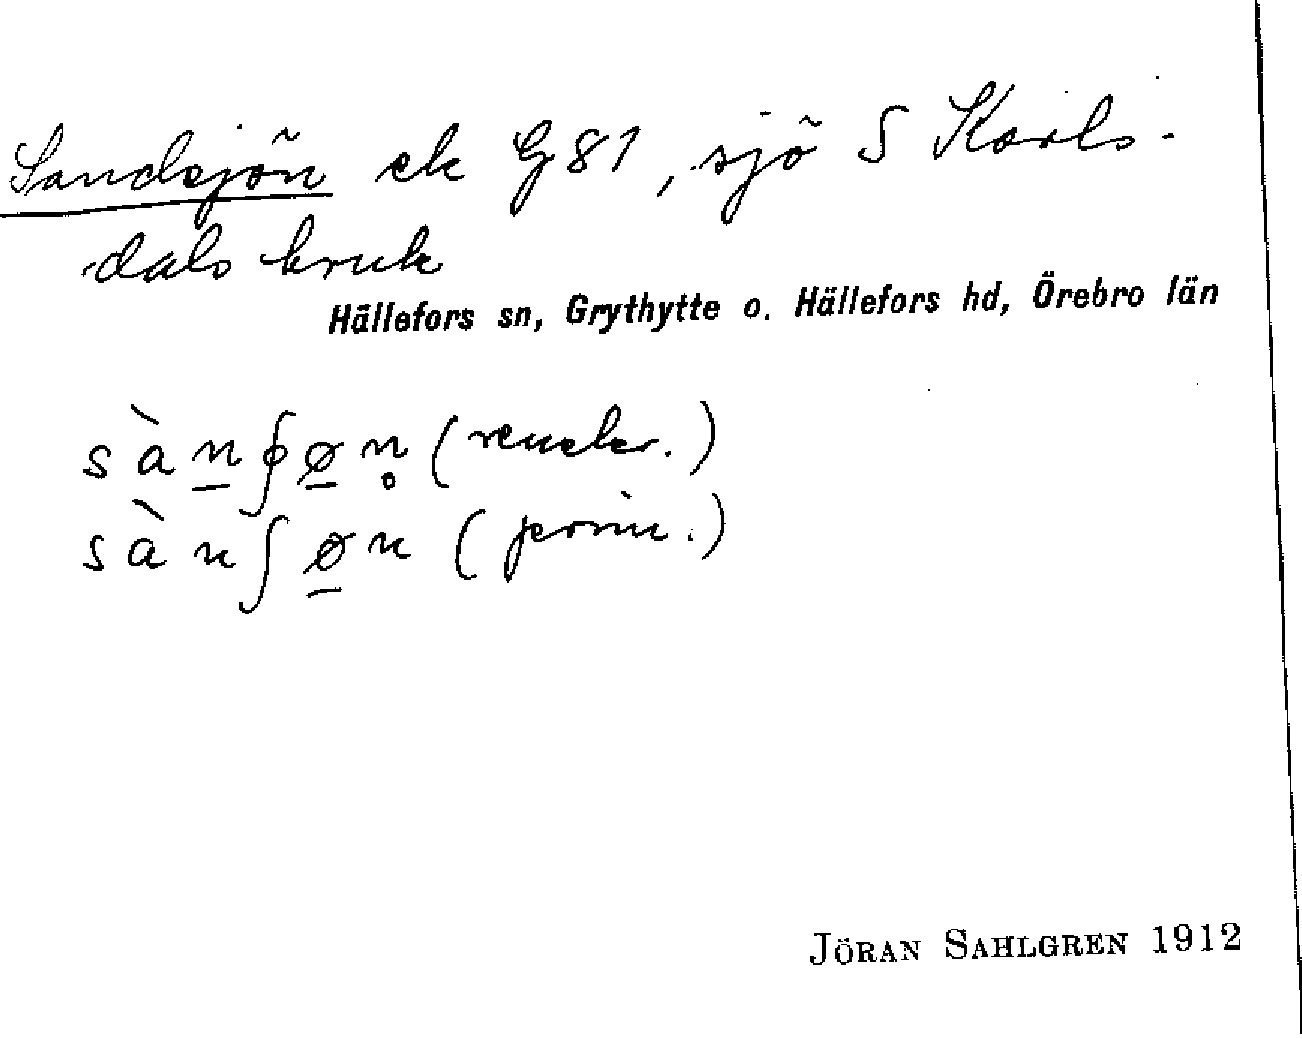 Sandsjön ek G 81, sjö S Karls-
dals bruk
Hällefors sn, Grythytte o. Hällefors hd, Örebro län
sàn̲ʃø̲n̥
sànʃø̲n
JÖRAN SAHLGREN 1912